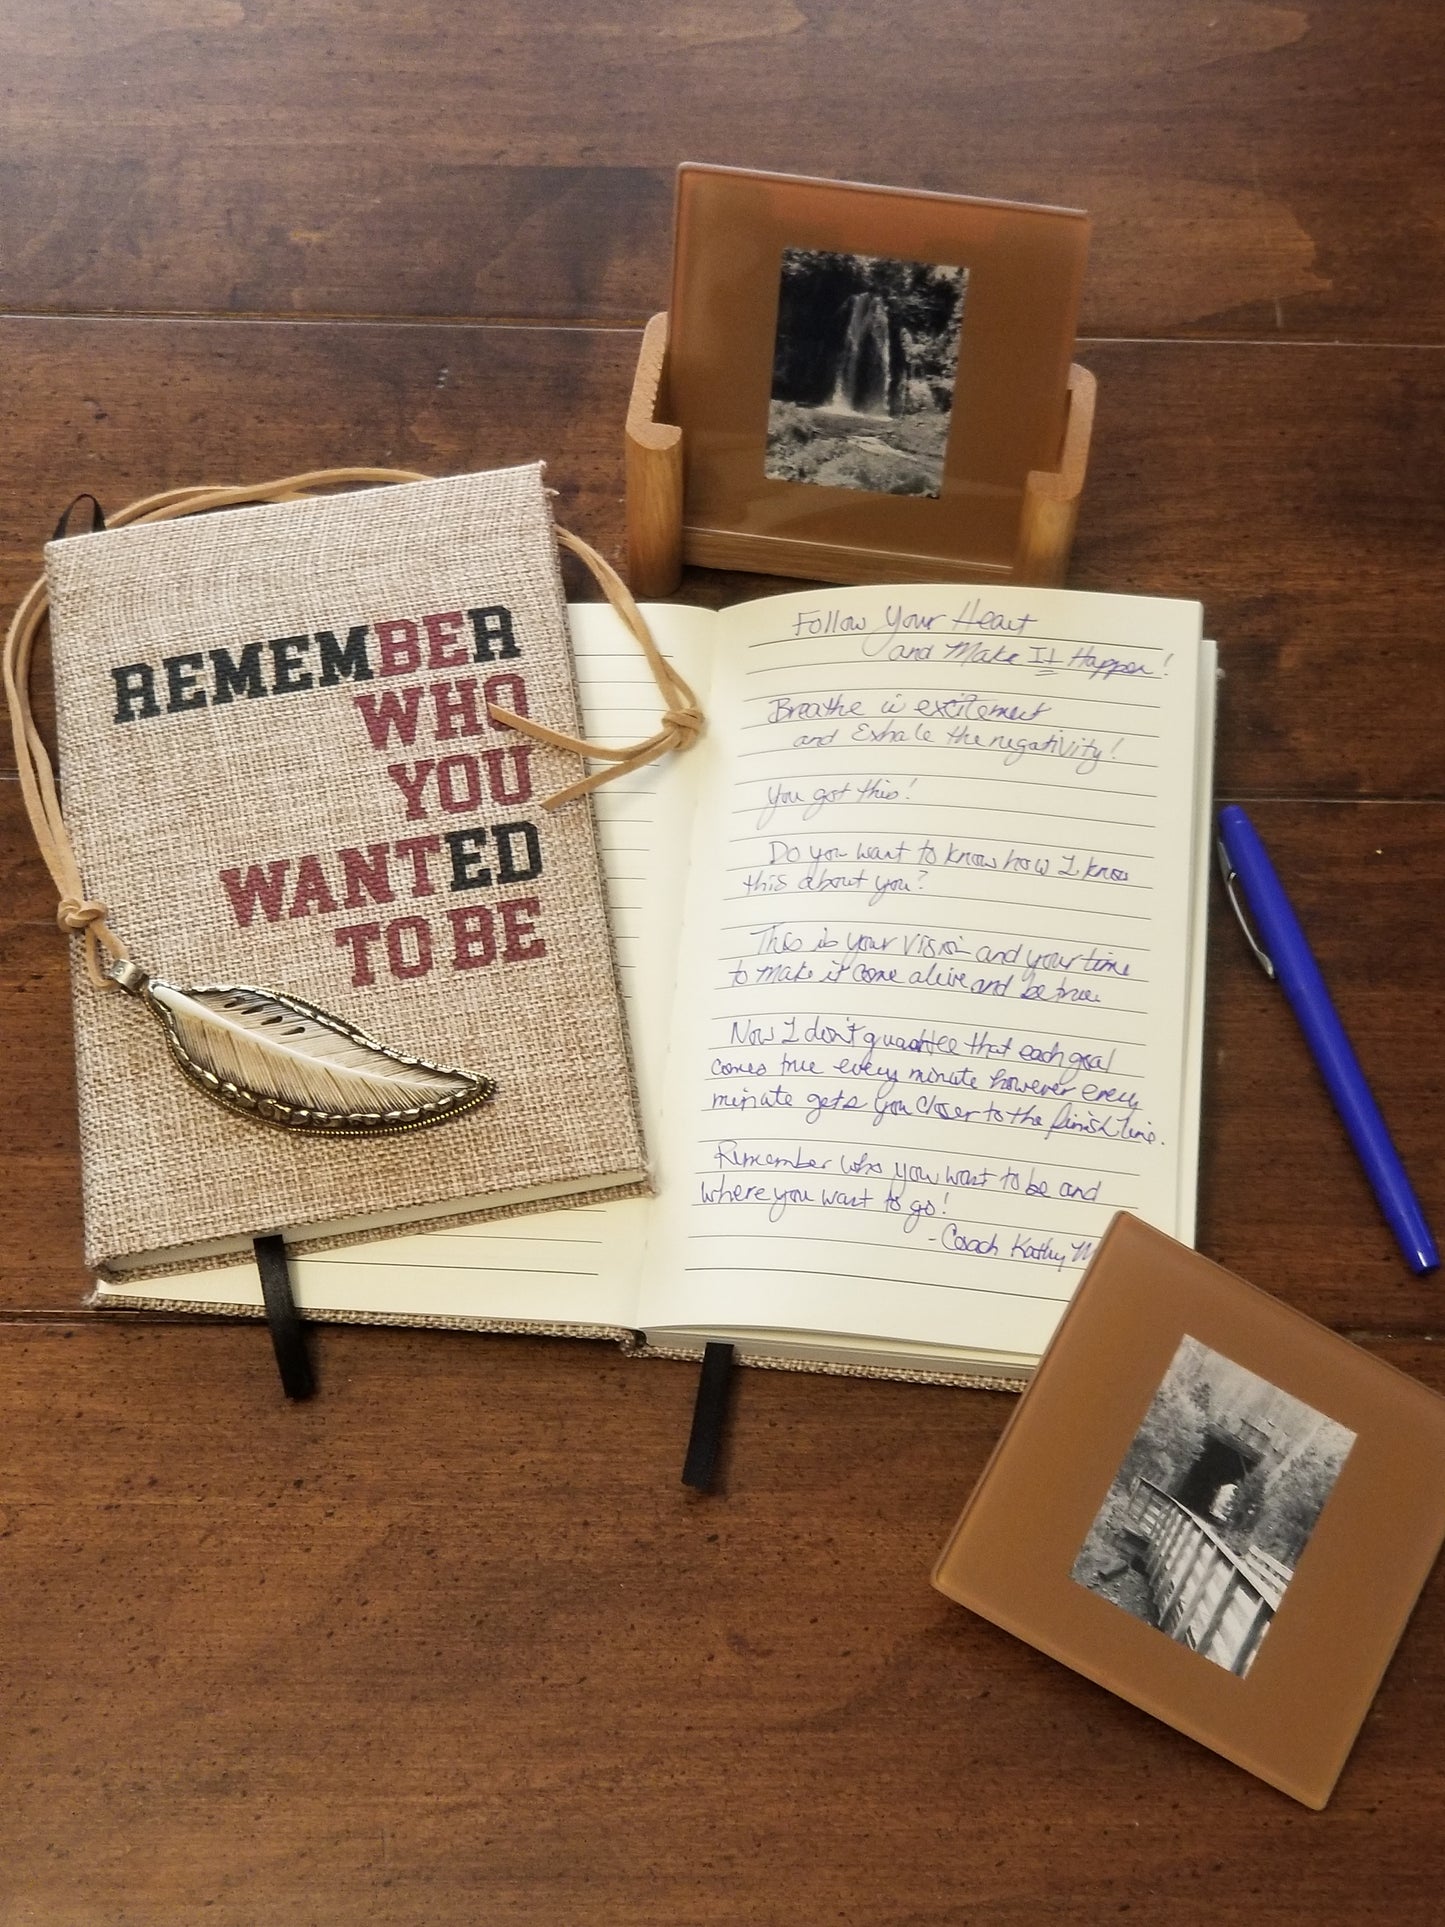 REMEMBER
WHO
YOU
WANTED
TO BE
Follow Your Heart
and Make It Happen!
Breathe in excitement
and Exhale the negativity!
You got this!
Do you want to know how I know
this about you?
This is your vision and your time
to make it come alive and be true.
Now I don't guarantee that each goal
comes true every minute however every
minute gets you closer to the finish line.
Remember who you want to be and
where you want to go!
- Coach Kathy M